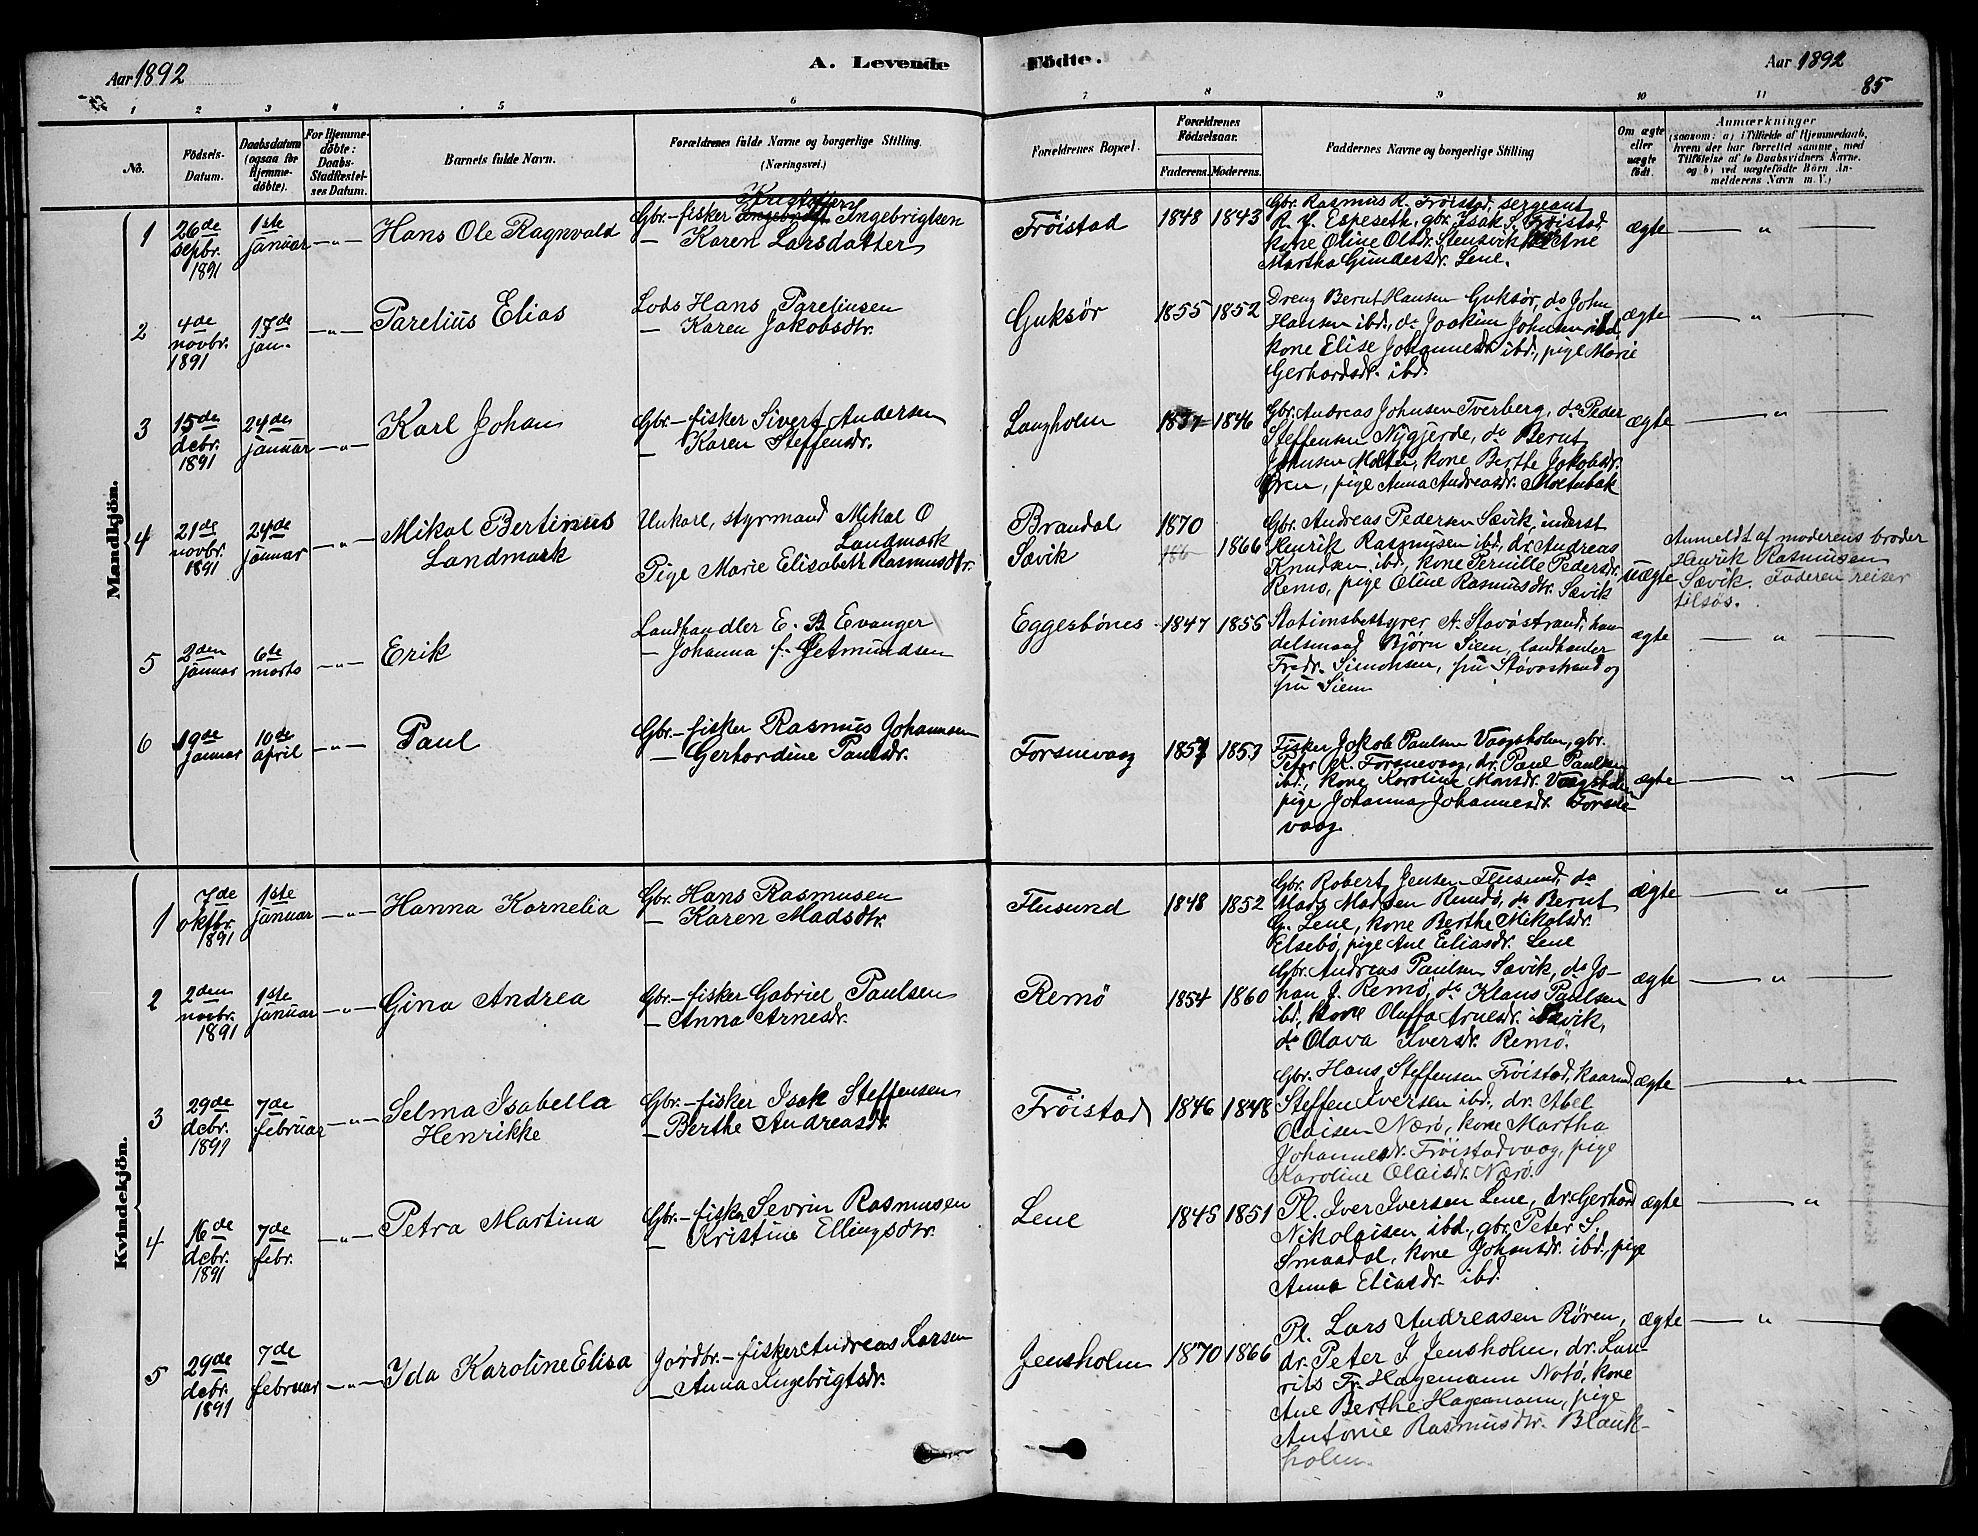 Aar 1892
A. Levende Födte.
Aar 1892
85
1 2 3 4 5 6 7 8 9 10 11
No.
Födsels-Datum.
Daabsdatum (ogsaa for Hjemme-döbte).
For Hjemme-döbte: Daabs-Stadfæstel-ses Datum.
Barnets fulde Navn.
Forældrenes fulde Navne og borgerlige Stilling.
(Næringsvei.)
Forældrenes Bopæl.
Forældrenes Födselsaar.
Faderens. Moderens.
Faddernes Navne og borgerlige Stilling
Om ægte eller uægte födt.
Anmærkninger
(saasom: a) i Tilfælde af Hjemmedaab,
hvem der har forrettet samme, med
Tilföielse af to Daabsvidners Navne.
og b) ved uægtefödte Börn An-
melderens Navn m. V.)
Mandkjön.
1
26de septbr. 1891
1ste januar
—„—
Hans Ole Ragnvald
Gbr.-fisker Ingebrigtsen
— Karen Larsdatter
Fröistad
1848 1843
Gbr. Rasmus R. Fröistad, sergeant
R. Y. Espeseth, gbr. Isak S. Fröistad,
kone Oline Olsdr. Stensvik, Ane
Martha Gundersdr. Lene.
ægte
— „ —
2
4de novbr. 1891
17de jan.
—„—
Parelius Elias
Lods Hans Pareliusen
— Karen Jakobsdtr.
Guksör
1855 1852
Dreng Bernt Hansen Guksör, do John
Hansen ibd., do Joakim Johnsen ibd
kone Elise Johannesdr. ibd., pige Marie
Gerhardsdr. ibd.
ægte
— „ —
3
15de debr. 1891
24de januar
—„—
Karl Johan
Gbr.-fisker Sivert Andersen
— Karen Steffensdr.
Langholm
1837 1846
Gbr. Andreas Johnsen Tverberg, do Peder
Steffensen Nygjerde, do Bernt
Johnsen Molter, kone Berthe Jakobsdr.
Ören, pige Anna Andreasdr. Moltubak
ægte
— „ —
4
21de novbr. 1891
24de januar
—„—
Mikal Bertinus
Landmark
Unkarl, styrmand Mikal O
Landmark
Pige Marie Elisabeth Rasmusdtr.
Brandal
Sævik
1870
1866
Gbr. Andreas Pedersen Sævik, inderst
Henrik Rasmusen ibd., dr. Andreas
Knudsen ibd., kone Pernille Pedersdr.
Remö, pige Oline Rasmusdtr. Sævik
uægte
Anmeldt af moderens broder
Henrik Rasmusen
Sævik. Faderen reiser
tilsøs.
5
2den januar
6te marts
—„—
Erik
Landhandler E. B Evanger
— Johanna f. Jetmundsen
Eggesbönes
1847 1855
Stationsbestyrer A. Stavöstrand, han-
delsmand Björn Siem, landhandler
Fredr. Simonsen, fru Stavöstrand og
fru Siem
ægte
— „ —
6
19de januar
10de April
—„—
Paul
Gbr.-fisker Rasmus Johannsen
— Gerhardine Paulsdr.
Forsnevaag
1857 1853
Fisker Jakob Paulsen Vaagsholm, gbr.
Peter K. Forsnevaag, dr. Paul Paulsen
ibd., kone Karoline Monsdr. Vaagsholm
pige Johanna Johannesdr. Forsne-
vaag.
ægte
— „ —
Kvindekjön.
1
7de oktbr. 1891
1ste januar
—„—
Hanna Kornelia
Gbr. Hans Rasmusen
— Karen Madsdtr.
Flusund
1848 1852
Gbr. Robert Jensen Flusund, do
Mads Madsen Rundö, do Bernt
G. Lene, kone Berthe Mikalsdr.
Elsebö, pige Ane Eliasdr. Lene
ægte
— „ —
2
2den novbr. 1891
1ste januar
—„—
Gina Andrea
Gbr.-fisker Gabriel Paulsen
— Anna Arnesdr.
Remö
1854 1860
Gbr. Andreas Paulsen Sævik, do Jo-
han J. Remö, do Klaus Paulsen
ibd., kone Oluffa Arnesdr. Sævik,
do Olava Iversdr. Remö.
ægte
— „ —
3
29de debr. 1891
7de februar
—„—
Selma Isabella
Henrikke
Gbr.-fisker Isak Steffensen
— Berthe Andreasdr.
Fröistad
1846 1848
Gbr. Hans Steffensen Fröistad, kaarmd
Steffen Iversen ibd., dr. Abel
Olaisen Nærö, kone Martha
Johannesdr. Fröistadvaag, pige
Karoline Olaisdr. Nærö.
ægte
— „ —
4
16de debr. 1891
7de febr.
—„—
Petra Martina
Gbr.-fisker Sevrin Rasmusen
— Kristine Ellingsdtr.
Lene
1845 1851
Pl. Iver Iversen Lene, dr. Gerhard
Nikolaisen ibd., gbr. Peter S.
Smaadal, kone Johansdr. ibd., pige
Anna Eliasdr. ibd.
ægte
— „ —
5
29de debr. 1891
7de februar
—„—
Ida Karoline Elisa
Jordbr.-fisker Andreas Larsen
— Anna Ingebrigtsdr.
Jensholm
1870 1866
Pl. Lars Andreasen Rören,
dr. Peter J. Jensholm, dr. Lau-
rits Fr. Hagemann Notö, kone
Ane Berthe Hagemann, pige
Antonie Rasmusdtr. Blank-
holm.
ægte
— „ —